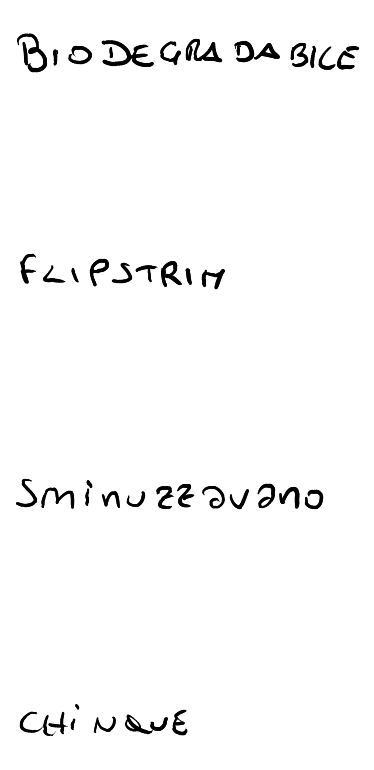 BIODEGRADABILE
FLIPSTRIM
sminuzzavano
CHINQUE